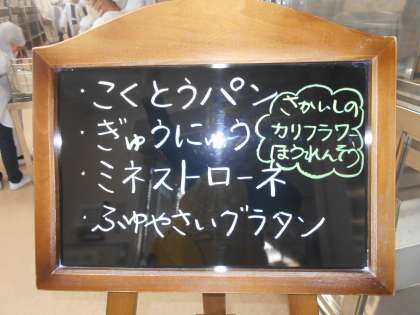 ・こくとうパン
・ぎゅうにゅう
・ミネストローネ
・ふゆやさいグラタン
さかいしの
カリフラワー、
ほうれんそう